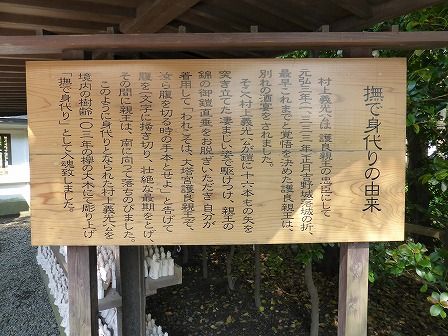 撫で身代りの由来
村上義光公は、護良親王の忠臣にして
元弘三年(一三三三)年正月吉野城落城の折、
最早これまでと覚悟を決めた護良親王は、
別れの酒宴をされました。
そこへ村上義光公が鎧に十六本もの矢を
突き立てた凄まじい姿で駆けつけ、親王の
錦の御鎧直垂をお脱ぎいただき自分が
着用して「われこそは、大塔宮護良親王ぞ、
汝ら腹を切る時の手本とせよ」と告げて
腹を一文字に掻き切り、壮絶な最期をとげ、
その間に親王は、南に向って落ちのびました。
このように身代りとなられた村上義光公を
境内の樹齢一〇二年の欅の大木にて彫り上げ
「撫で身代り」として入魂致しました。